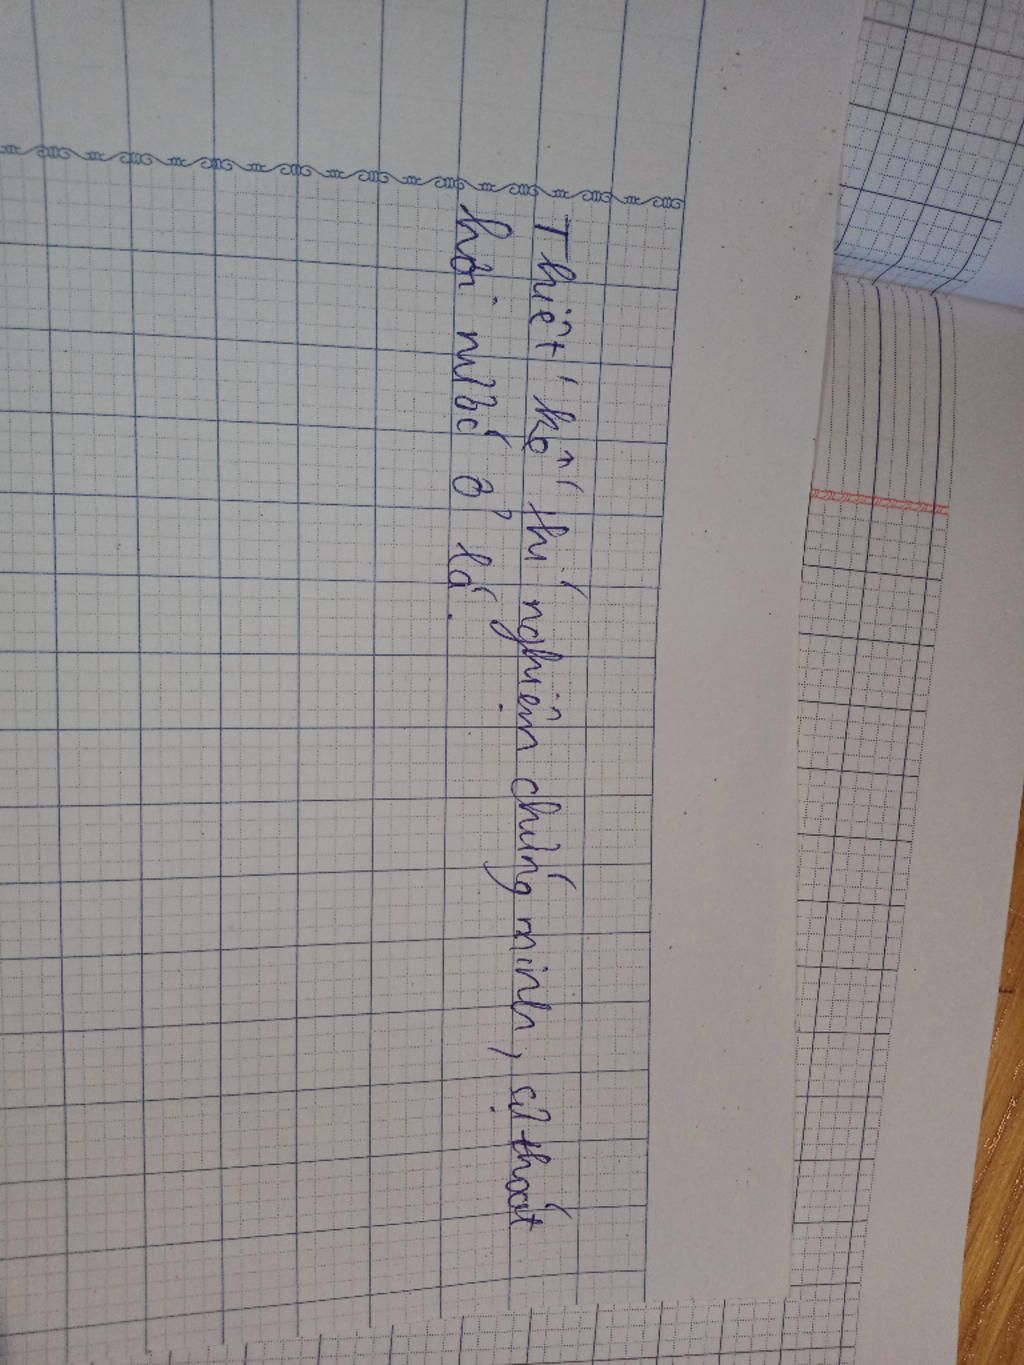 Thiết kế thí nghiệm chứng minh, sự thoát
hơi nước ở lá.